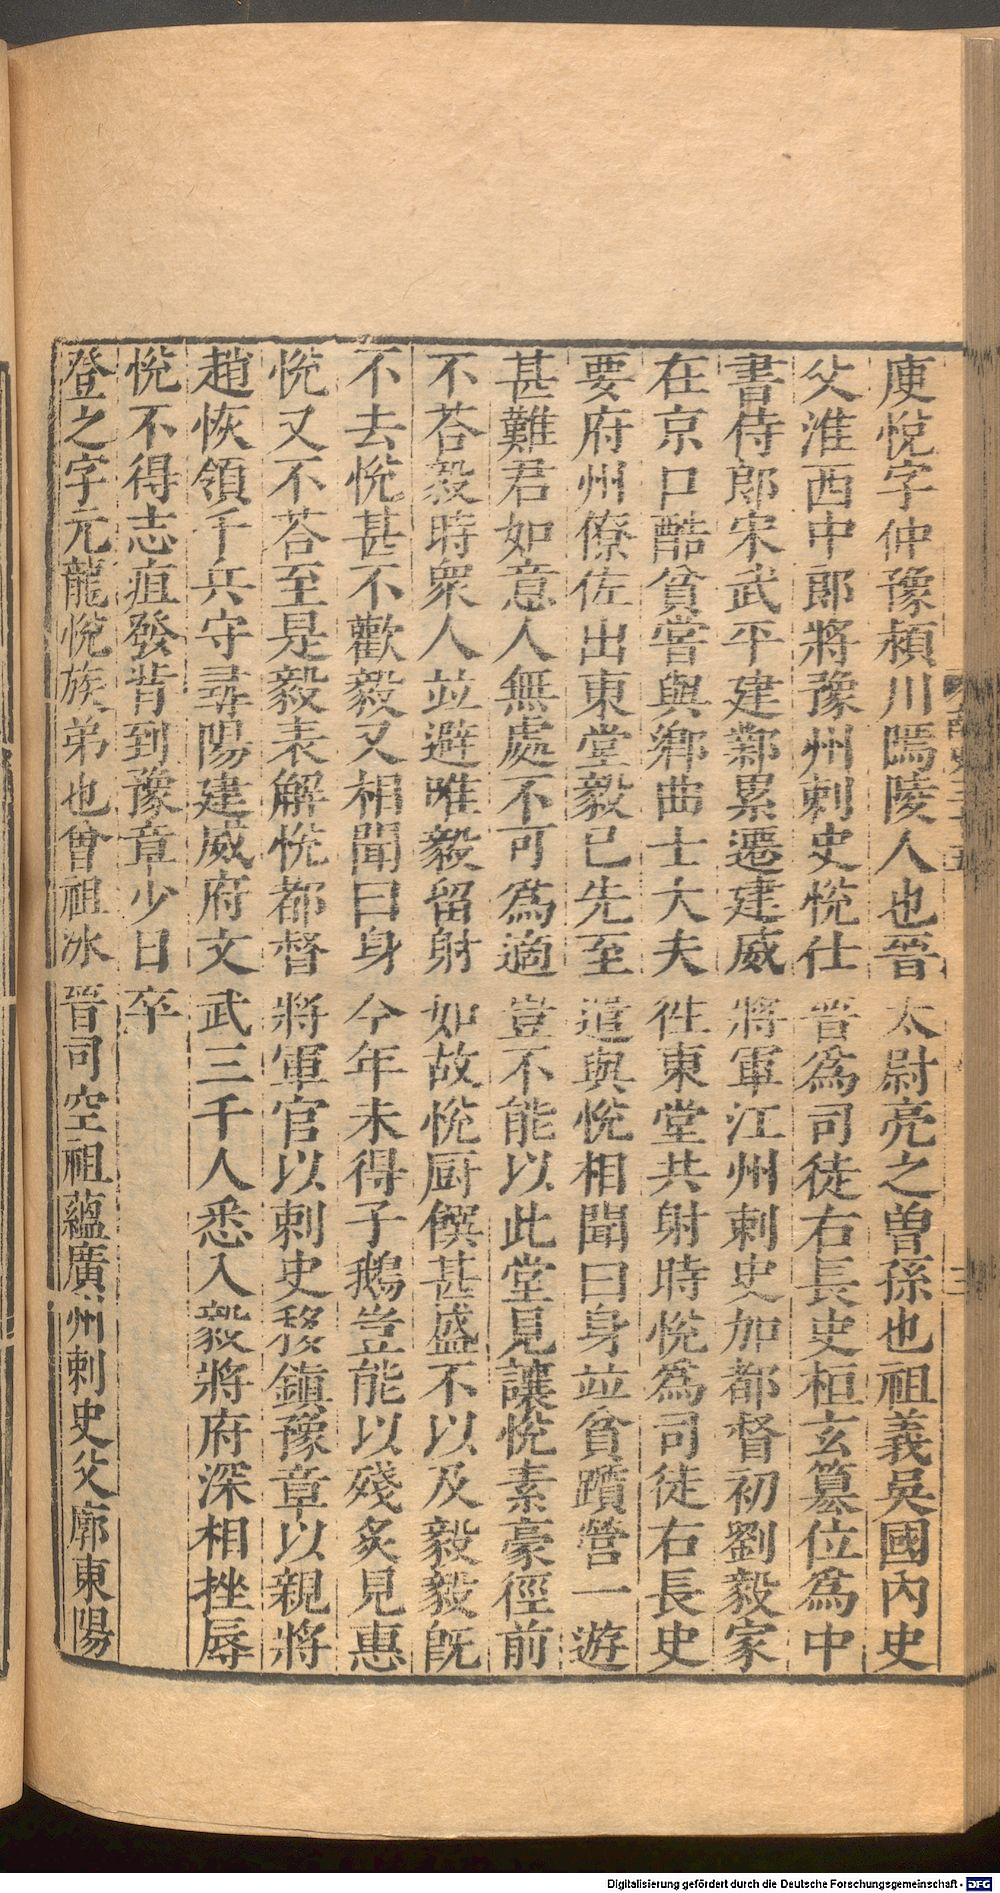 庾悅字仲豫潁川鄢陵人也晉太尉亮之曾孫也祖義吳國內史
父淮西中郎將豫州刺史悅仕晉爲司徒右長史桓玄篡位爲中
書侍郎宋武平建鄴累遷建威將軍江州刺史加都督初劉毅家
在京口酷貧嘗與鄉曲士大夫徃東堂共射時悅爲司徒右長史
要府州僚佐出東堂毅已先至遣與悅相聞曰身並貧躓營一遊
甚難君如意人無處不可爲適豈不能以此堂見讓悅素豪徑前
不荅毅時衆人並避唯毅留射如故悅厨饌甚盛不以及毅毅旣
不去悅甚不歡毅又相聞曰身今年未得子鵝豈能以殘炙見惠
悅又不荅至是毅表解悅都督將軍官以刺史移鎮豫章以親將
趙恢領千兵守尋陽建威府文武三千人悉入毅將府深相挫辱
悅不得志疽發背到豫章少日卒
登之字元龍悅族弟也曾祖冰晉司空祖蘊廣州刺史父廓東陽
Digitalisierung gefördert durch die Deutsche Forschungsgemeinschaft - DFG